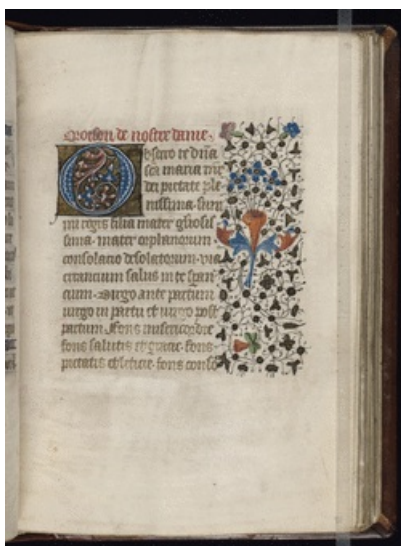 Oroison de nostre dame.
Obsecro te dn̄a
sc̄a maria mr̄e
dei pietate ple
nissima. sum
mi regis filia mater glōsis
sima. mater orphanorum.
consolacio desolatorum. via
errancium salus in te sperā
cium. Virgo ante partum
virgo in partu et virgo post
partum. ffons misericordie
fons salutis et gracie. fons
pietatis et leticie. fons conso